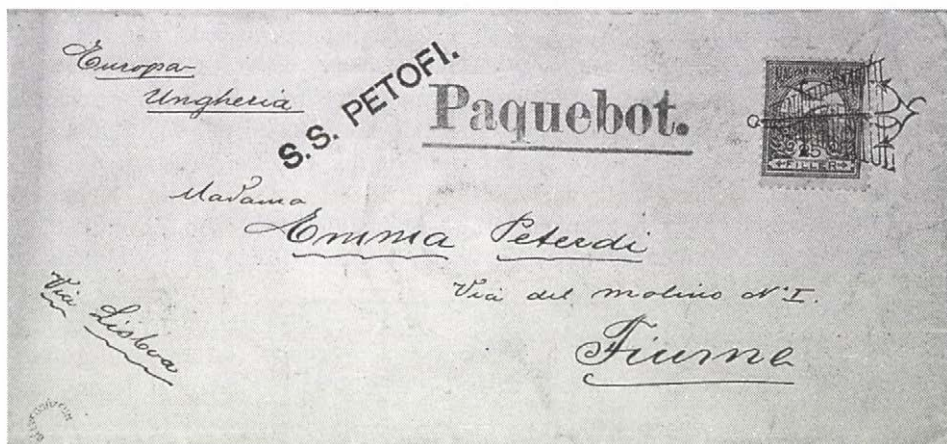 Europa
Ungheria
S.S. PETOFI.
Paquebot.
25
FILLER
Madama
Emma Peterdi
Via del molino N° I.
Via Lisboa
Fiume